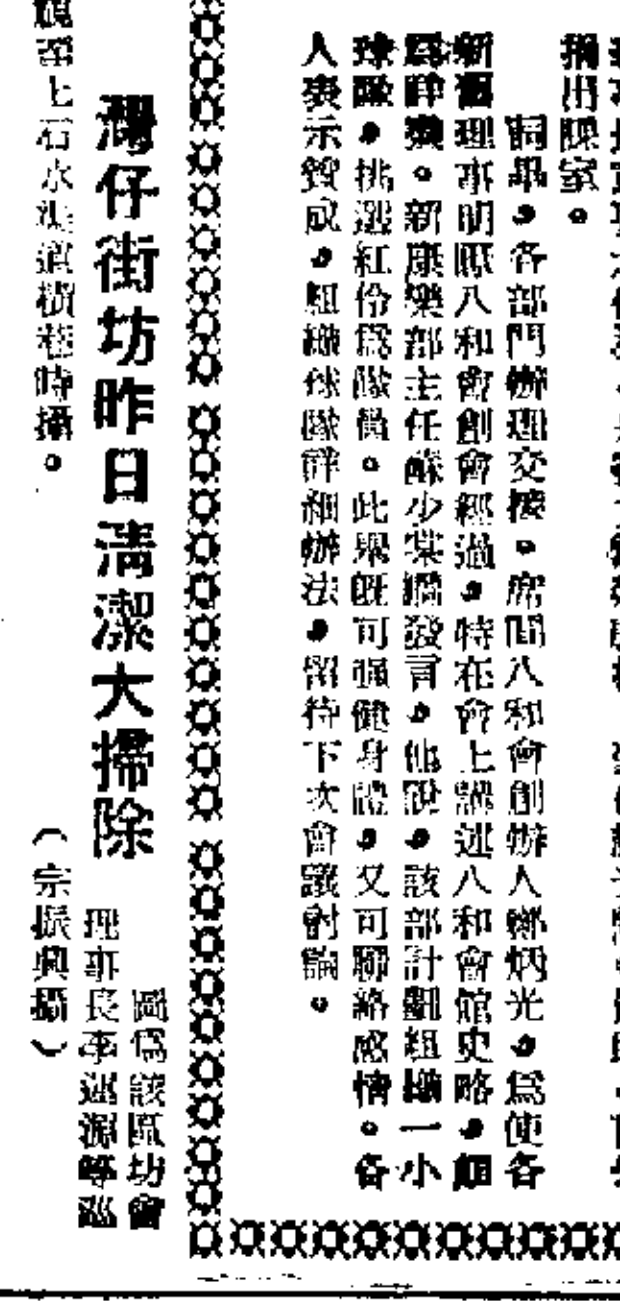 摘出課室。
詞畢，各部門辦理交接。席間八和會創辦人鄺炳光，爲使各
新舊理事明瞭八和會創會經過，特在會上講述八和會館史略，頗
爲詳細。新康樂部主任蘇少棠繼發言，他說，該部計劃組織一小
球隊，挑選紅伶爲隊員。此舉旣可強健身體，又可聯絡感情。各
人表示贊成，組織球隊詳細辦法，留待下次會議討論。
灣仔街坊昨日清潔大掃除
圖爲該區坊會
理事長李運源等巡
視至上石水渠道橫巷時攝。
（宗振興攝）